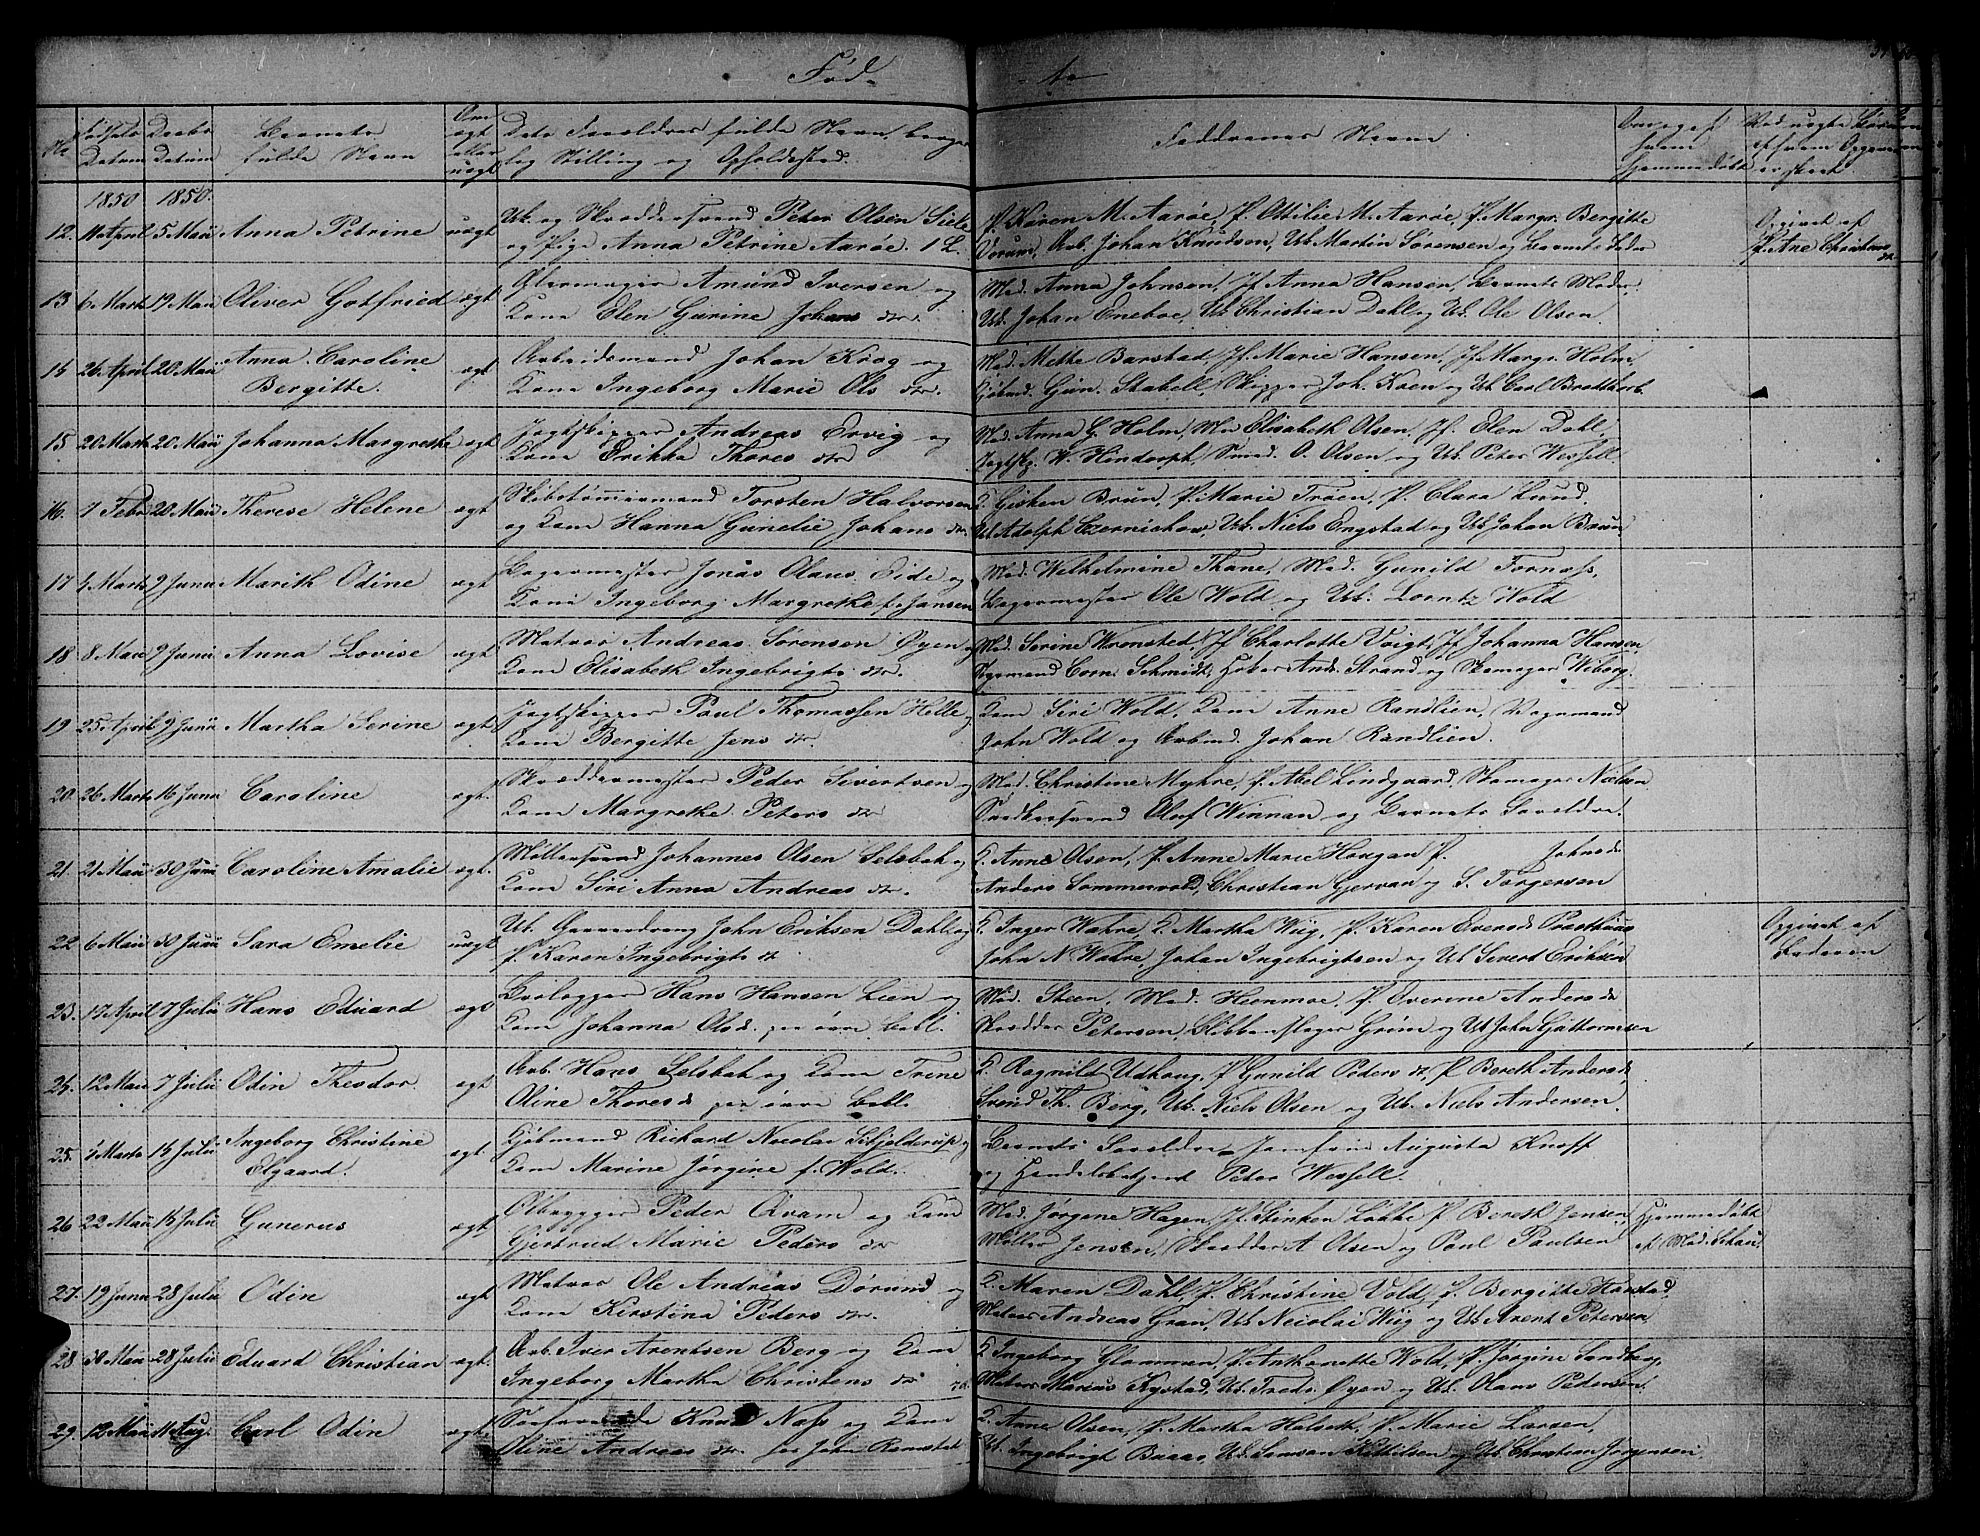 Fød- te
No
Fødsels Datum
Daabs Datum
Barnets fulde Navn
Om ægte eller uægte
Dets Forældres fulde Navn, borgerlig Stilling og Opholdssted.
Faddernes Navne
1850 1850.
12. 5 Maii Anna Petrine uægt
og Pige Anna Petrine Aarøe. 1 L.
P. Karen M. Aarøe, P. Otilie M. Aarøe, P. Margr. Bergitte
Arb. Johan Knudson, Uk. Martin Sørensen og Barnets Fader
Opgivet af
P. Ane
13 6 Marts 19 Maii Oliver Gotfried ægt
Amund Iversen og
Kone Elen Gurine Johans dtr.
Mad. Anna Johnsen, Jf. Anna Hansen, Barnets Moder,
Uk. Johan Eneboe, Uk. Christian Dahl og Uk. Ole Olsen.
15 26 April 20 Maii Anna Caroline
Bergitte. ægt
Arbeidsmand Johan Krog og
Kone Ingeborg Marie Ols dtr.
Mad. Mette Barstad, Jf. Marie Hansen, Jf. Margr. Holm,
Kjøbmd. Gun. Stabell, Skipper Joh. Koen og Uk. Carl
15 20 Marts 20 Maii Johanna Margrethe ægt
Jagtskipper Andreas Ervig og
Kone Erikka Thores dtr
Mad. Anna G. Holm, Elisabeth Olsen, Jf. Elen Dahl,
W. Hindorph, Smed. O. Olsen og Uk. Peter Wessell.
16. 7 Febr 20 Maii Therese Helene ægt
Skibstømmermand Torsten Halvorsen
og Kone Hanna Gunelie Johans dtr.
K. Gisken Brun, P. Marie Troen, P. Clara Lund,
Uk. Adolph Uk. Niels Engstad og Uk. Johan Brun.
17 4 Marts 9 Junii Marith Odine ægt
Bagermester Jonas Olaus Eide og
Kone Ingeborg Margrethe f. Jansen
Mad. Wilhelmine Thane, Mad. Gunild Fornæss,
Bagermester Ole Wold og Uk. Lorentz Wold
18 8 Maii 9 Junii Anna Lovise ægt
Matros Andreas Sørensen Øyen og
Kone Elisabeth Ingebrigts dtr.
Mad. Serine Wemsted, Jf. Charlotte Voigt, Jf. Johanna Hansen,
Corn. Schmidt, And. Strand og Skomager Wiborg.
19 25 April 9 Junii Martha Serine ægt
Jagtskipper Poul Thomassen Helle og
Kone Bergitte Jens dtr.
Kone Siri Wold, Kone Anne Randlien, Vognmand
John Wold og Arbmd. Johan Randlien.
20. 26 Marts 16 Junii Caroline ægt.
Skræddermester Peder Sivertsen og
Kone Margrethe Peters dtr
Mad. Christine Myhre, P. Abel Lindgaard, Skomager Nielsen
Snedkersvend Oluf Winnan og Barnets Forældre.
21. 21 Maii 30 Junii Caroline Amalie ægt.
Møllersvend Johannes Olsen Selsbak og
Kone Siri Anna Andreas dtr.
K. Anne Olsen, P. Anne Marie Haugan P. Johnsd.
Anders Sommervold, Christian Gjervan og S. Torgersen
22 6 Maii 30 Junii Sara Emelie uægt
Uk. Gaardsdreng John Eriksen Dahl og
P. Karen Ingebrigts dr
K. Inger Wahre, K. Martha Wiig, P. Karen Eversd.
John N. Wahre, Johan Ingebrigtsen og Uk. Sivert Eriksen
Opgivet af
Faderen
23. 17 April 7 Julii Hans Eduard ægt
Brolægger Hans Hansen Leen og
Kone Johanna Olsd. paa øvre Bakl.
Mad. Steen, Mad. Heenmoe, P. Everine Anders dr
Skrædder Petersen, Grim og Uk. John Guttormsen
24. 12 Maii 7 Julii Odin Theodor ægt
Arb. Hans Selsbak og Kone Trine
Oline Thoresd. paa øvre Bakl.
K. Ragnild Udhaug, P. Gunild Peders dr, P. Bereth Andersd.
Svend Th. Berg, Uk. Niels Olsen og Uk. Niels Andersen.
25. 4 Marts 14 Julii Ingeborg Christine
Elgaard. ægt
Kjøbmand Richard Nicolai Schjelderup og
Kone Marine Jørgine f. Wold.
Barnets Forældre, Jomfrue Augusta Knoff
og Handelsbetjent Peter Wessell.
26 22 Maii 14 Julii Gunerus ægt
Ølbrygger Peder Qvam og Kone
Gjertrud Marie Peders dtr
Mad. Jørgine Hagen, Jf. Stinken Løkke, P. Bereth Jensen,
Møller Jensen, Skrædder A. Olsen og Paul Paulsen
Hjemmedøbt
af Mad. Schau
27. 19 Junii 28 Julii Odin ægt
Matros Ole Andreas Dørum og
Kone Kirstina Peders dtr.
K. Maren Dahl, P. Christine Vold, P. Bergitte Harstad,
Matros Andreas Gran, Uk. Nicolai Wiig og Uk. Arent Petersen,
28 30 Maii 28 Julii Eduard Christian ægt.
Arb. Iver Arentsen Berg og Kone
Ingeborg Martha Christens dr
K. Ingeborg Glamman, P. Anthonette Wold, P. Jørgine Sandberg,
Matros Marius Rystad, Uk. Fredr. Øyen og Uk. Olaus Pedersen.
29. 12 Maii 11 Aug. Carl Odin ægt.
Søefarende Knud Næss og Kone
Oline Andreas dtr
K. Anne Olsen, P. Martha Halseth, P. Marie Larsen,
Uk. Ingebrigt Buaas, Uk. Kittilsen og Uk. Christian Jørgensen.